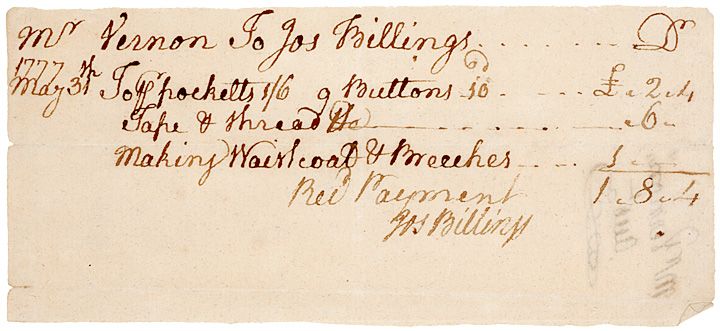 Mr Vernon To Jos Billings Dr
1777
May 31th To pr pocketts 1/6 9 Buttons 10d £ " 2 " 4
Tape & thread " 6 "
Making Waistcoat & Breeches 1 "
Recd Payment 1 " 8 " 4
Jos Billings